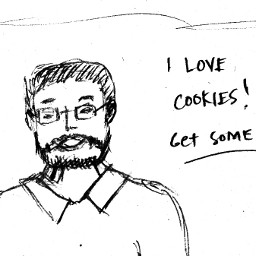 I LOVE
COOKIES!
Get SOME